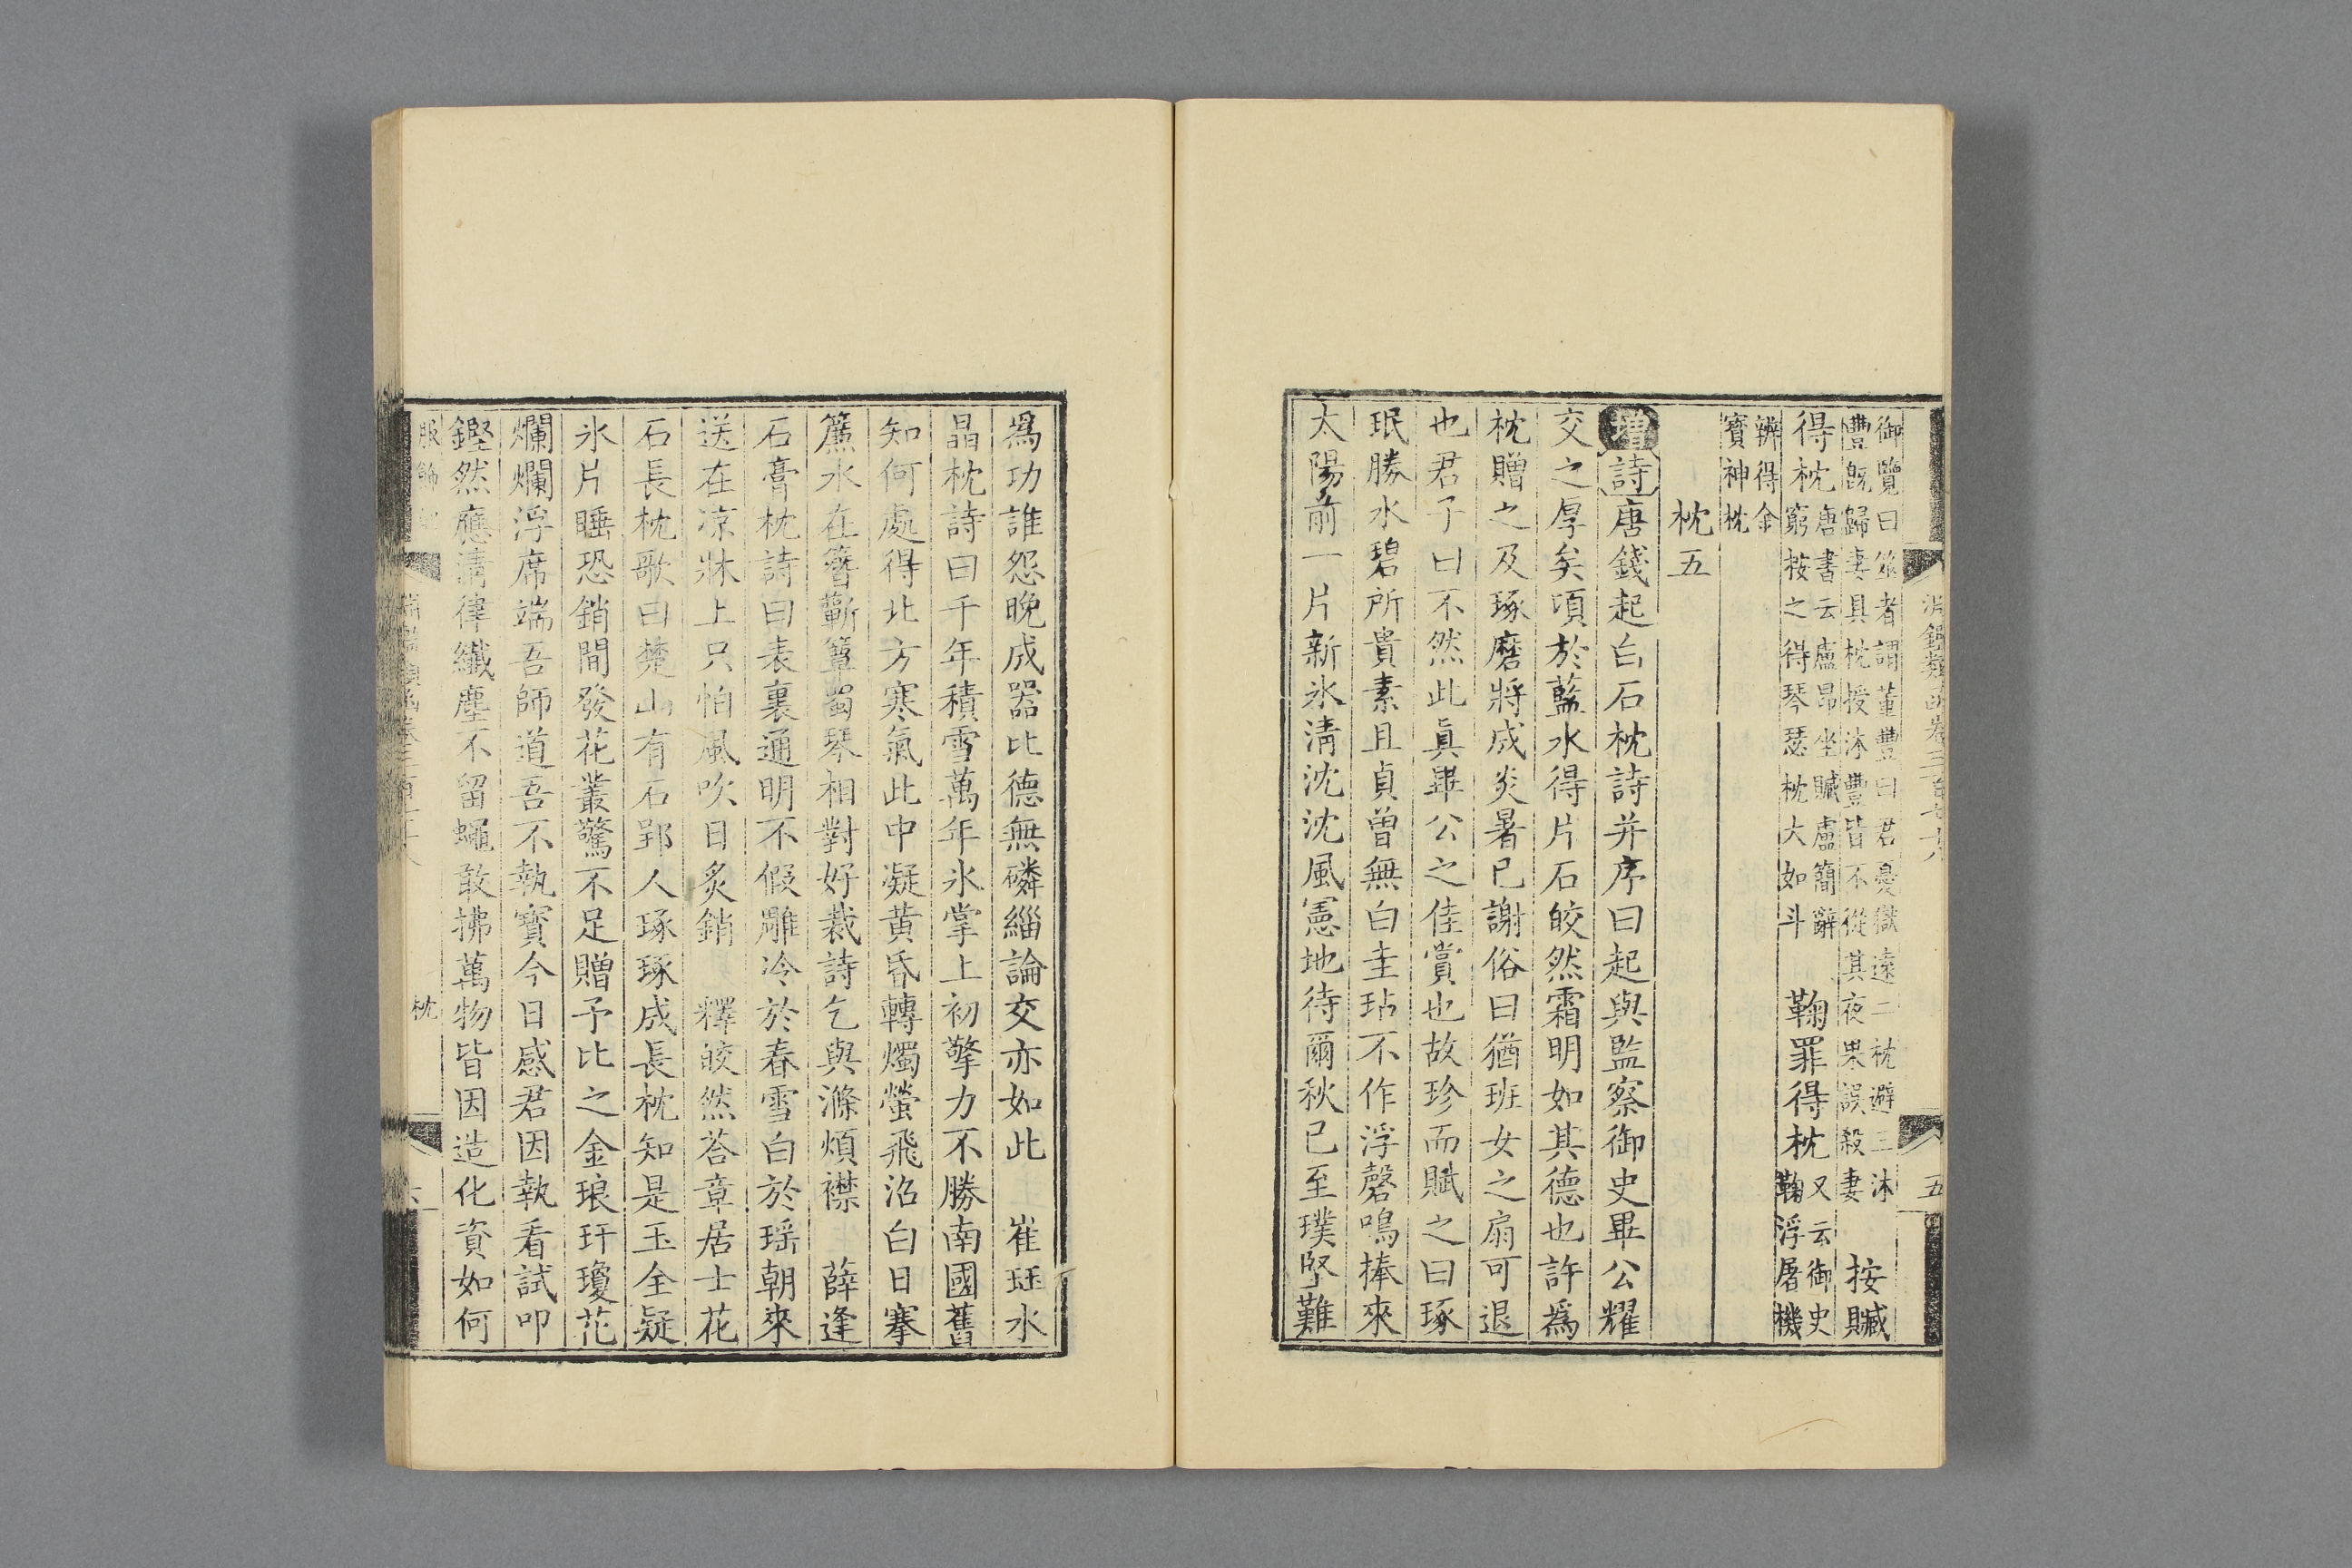 淵鑑類函卷三百七十八
五
御覽曰筮者謂董豐曰君憂獄遠二枕避三沐
豐既歸妻具枕授沐豐皆不從其夜果誤殺妻
按贓
得枕
唐書云盧昂坐贓盧簡辭
窮按之得琴瑟枕大如斗
鞠罪得枕
又云御史
鞠浮屠機
辨得金
寶神枕
枕五
增詩唐錢起白石枕詩并序曰起與監察御史畢公耀
交之厚矣頃於藍水得片石皎然霜明如其德也許爲
枕贈之及琢磨將成炎暑已謝俗曰猶班女之扇可退
也君子曰不然此眞畢公之佳賞也故珍而賦之曰琢
珉勝水碧所貴素且貞曾無白圭玷不作浮磬鳴捧來
太陽前一片新氷淸沈沈風憲地待爾秋已至璞堅難
爲功誰怨晚成器比德無磷緇論交亦如此 崔珏水
晶枕詩曰千年積雪萬年氷掌上初擎力不勝南國舊
知何處得北方寒氣此中凝黃昏轉燭螢飛沼白日搴
簾水在簪蘄簟蜀琴相對好裁詩乞與滌煩襟 薛逢
石膏枕詩曰表裏通明不假雕冷於春雪白於瑶朝來
送在凉牀上只怕風吹日炙銷 釋皎然荅章居士花
石長枕歌曰楚山有石郢人琢琢成長枕知是玉全疑
氷片睡恐銷閒發花叢驚不足贈予比之金琅玕瓊花
爛爛浮席端吾師道吾不執寶今日感君因執看試叩
鏗然應淸律纖塵不留蠅敢拂萬物皆因造化資如何
服飾
淵鑑類函卷三百七十八
枕
六